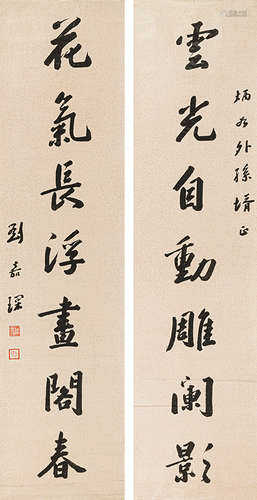 雲光自動雕阑影
炳如外孫壻正
花氣長浮畫閣春
劉嘉琛